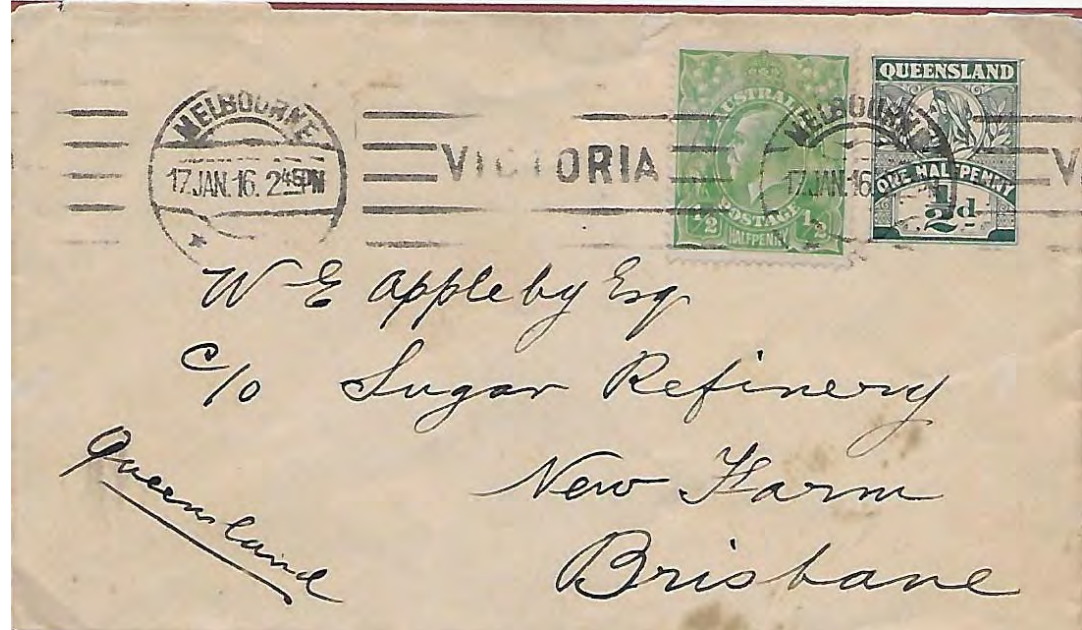 MELBOURNE
17.JAN.16. 245PM
VICTORIA
AUSTRALIA
POSTAGE
½ HALFPENNY ½
MELBOURNE
17.JAN.16
QUEENSLAND
ONE HALFPENNY
½d.
V
W E Appleby Esq.
C/o Sugar Refinery
New Farm
Brisbane
Queensland